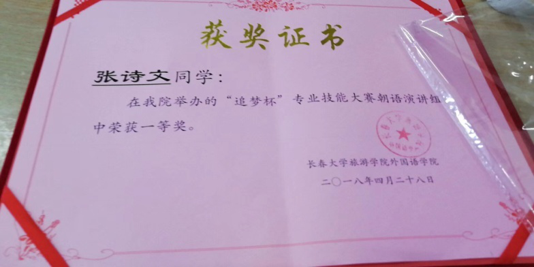 获奖证书
张诗文同学：
在我院举办的“追梦杯”专业技能大赛朝语演讲组
中荣获一等奖。
长春大学旅游学院外国语学院
二〇一八年四月二十八日